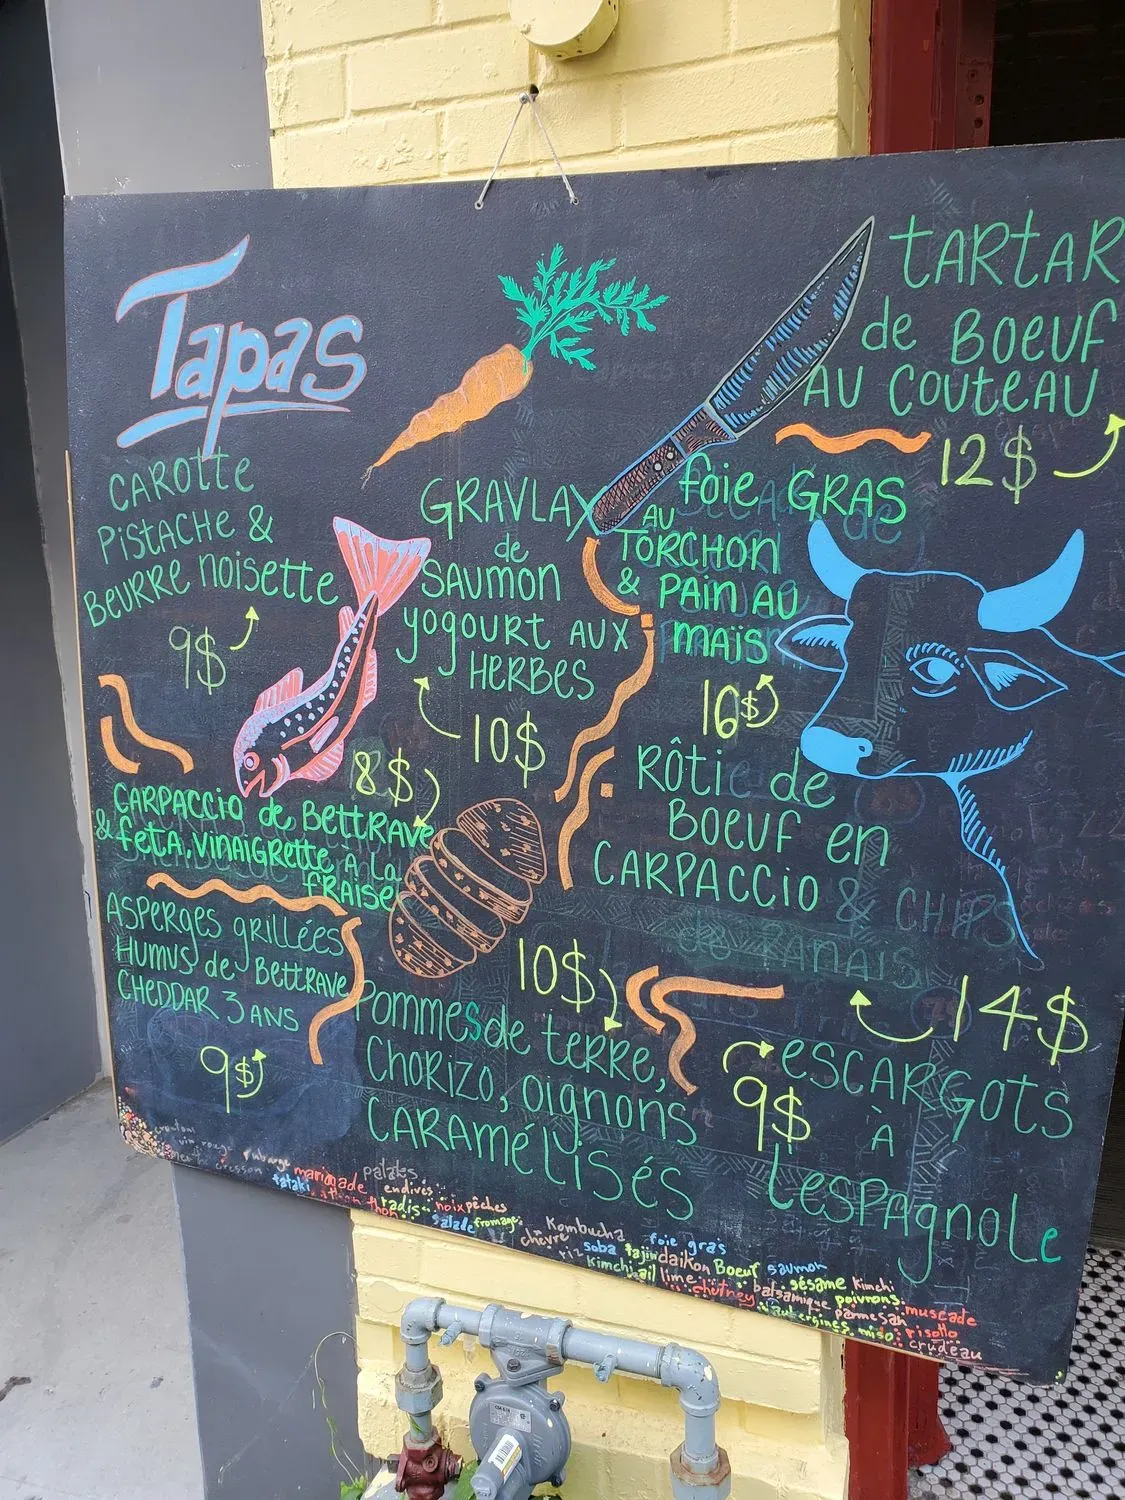 Tapas
CAROTTE
PISTACHE &
BEURRE NOISETTE
9$
GRAVLAX
de
SAUMON
yogourt AUX
HERBES
10$
TARTAR
de BOEUF
AU COUTEAU
12$
foie GRAS
AU
TORCHON
& PAIN AU
MAÏS
16$
RÔTIE de
BOEUF en
CARPACCIO & CHIPS
de PANAIS
14$
8$
CARPACCIO de BETTRAVE
& feta, VINAIGRETTE À LA
FRAISE
ASPERGES GRILLÉES
HUMUS de BETTRAVE
CHEDDAR 3 ANS
9$
10$
POMMES de TERRE,
CHORIZO, OIGNONS
CARAMÉLISÉS
9$
ESCARGOTS
À
L'ESPAGNOLE
cresson
marinade palates
endives
tataki
thon
radis noix pêches
salade fromage
Kombucha foie gras
chèvre
riz soba fajin daikon Boeuf saumon
Kimchi ail lime sésame Kimchi
chutney balsamique poivrons
aubergines parmesan muscade
miso risotto
crudeau